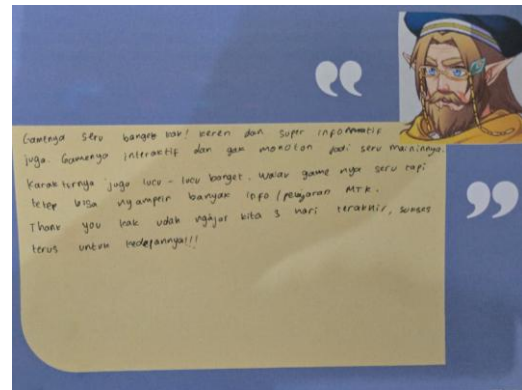 Gamenya seru banget kak! keren dan super informatif
juga. Gamenya interaktif dan gak monoton jadi seru maininnya.
Karakternya juga lucu-lucu banget. Walau game nya seru tapi
tetep bisa nyampein banyak info/pelajaran MTK.
Thank you kak udah ngajar kita 3 hari terakhir, sukses
terus untuk kedepannya!!!